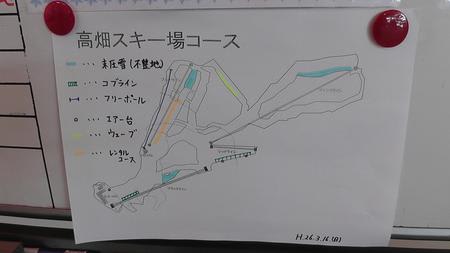 高畑スキー場コース
・・・未圧雪(不整地)
・・・コブライン
・・・フリーポール
・・・エアー台
・・・ウェーブ
・・・レンタル
コース
H.26.3.16(日)